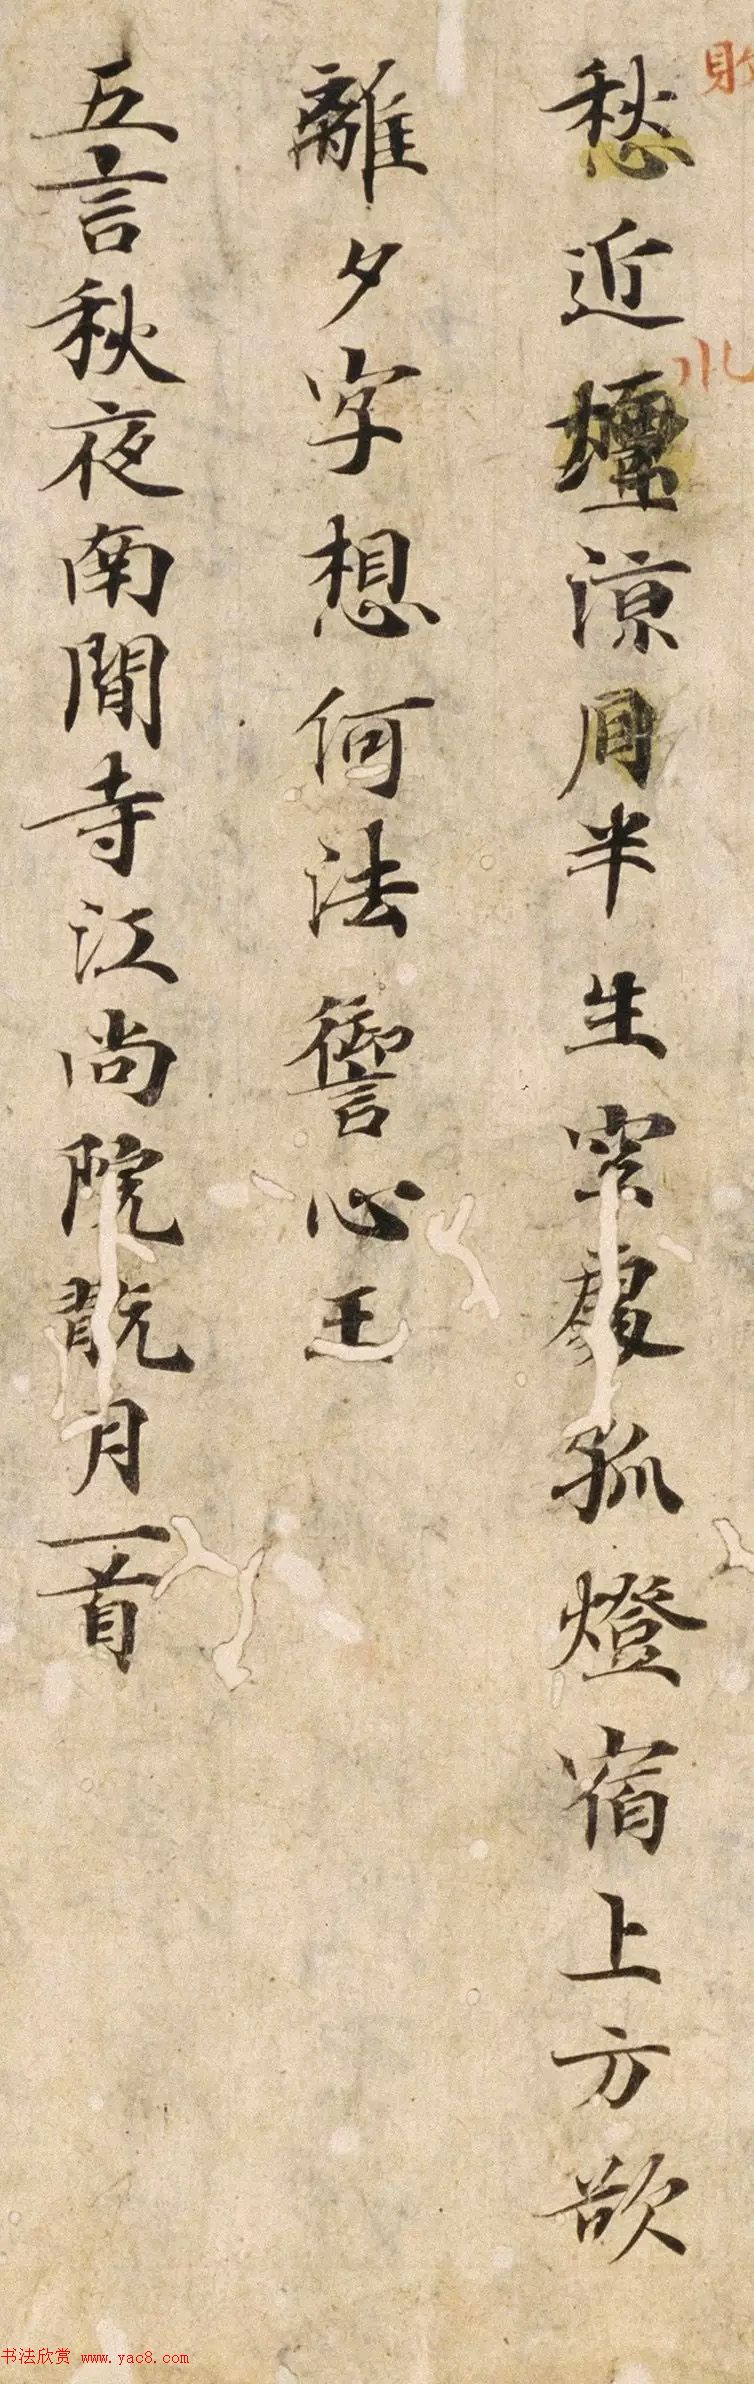 愁近壇涼月半生空處孤燈宿上方欲
離夕字想何法御言心王
五言秋夜南閒寺江尚院翫月一首
书法欣赏 www.yac8.com